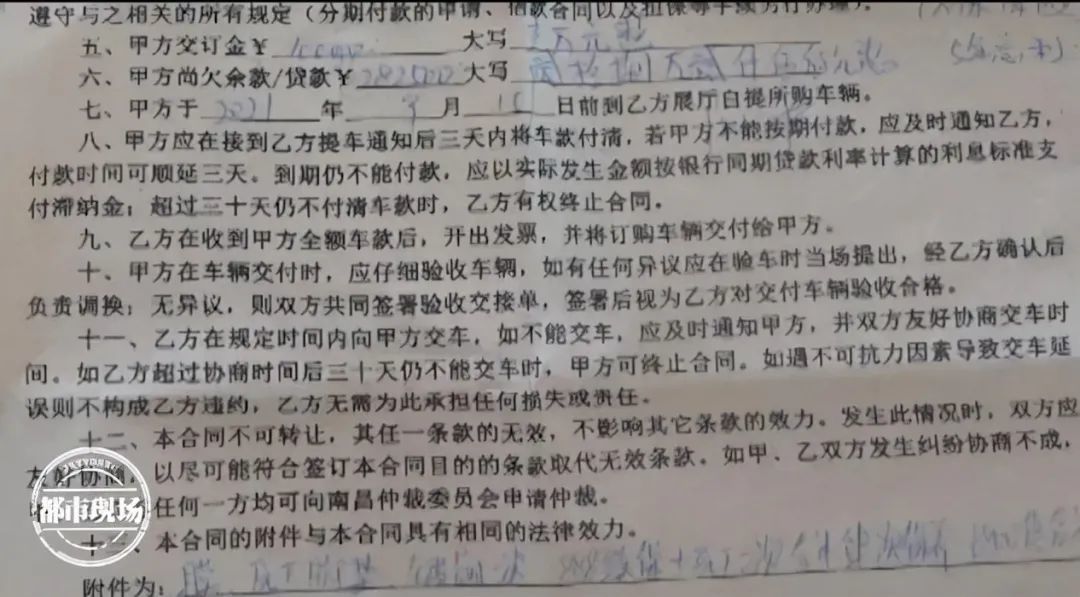 遵守与之相关的所有规定(分期付款的申请、借款合同以及担保等手续另行办理).
五、甲方交订金￥ 大写
六、甲方尚欠余款/贷款￥ 282500 大写
七、甲方于 2021 年 月 日前到乙方展厅自提所购车辆。
八、甲方应在接到乙方提车通知后三天内将车款付清，若甲方不能按期付款，应及时通知乙方，
付款时间可顺延三天。到期仍不能付款，应以实际发生金额按银行同期贷款利率计算的利息标准支
付滞纳金；超过三十天仍不付清车款时，乙方有权终止合同。
九、乙方在收到甲方全额车款后，开出发票，并将订购车辆交付给甲方。
十、甲方在车辆交付时，应仔细验收车辆，如有任何异议应在验车时当场提出，经乙方确认后
负责调换；无异议，则双方共同签署验收交接单，签署后视为乙方对交付车辆验收合格。
十一、乙方在规定时间内向甲方交车，如不能交车，应及时通知甲方，并双方友好协商交车时
间。如乙方超过协商时间后三十天仍不能交车时，甲方可终止合同。如遇不可抗力因素导致交车延
误则不构成乙方违约，乙方无需为此承担任何损失或责任。
十二、本合同不可转让，其任一条款的无效，不影响其它条款的效力。发生此情况时，双方应
友好协商，以尽可能符合签订本合同目的的条款取代无效条款。如甲、乙双方发生纠纷协商不成，
任何一方均可向南昌仲裁委员会申请仲裁。
十三、本合同的附件与本合同具有相同的法律效力。
附件为：
都市现场